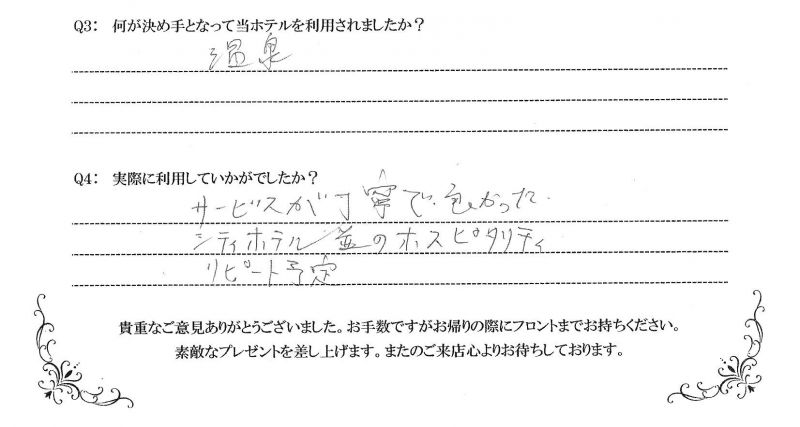 Q3: 何が決め手となって当ホテルを利用されましたか?
温泉
Q4: 実際に利用していかがでしたか?
サービスが丁寧で、良かった.
シティホテル並のホスピタリティ
リピート予定
貴重なご意見ありがとうございました。お手数ですがお帰りの際にフロントまでお持ちください。
素敵なプレゼントを差し上げます。またのご来店心よりお待ちしております。